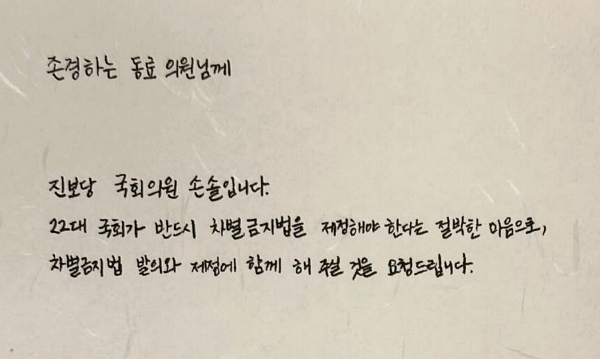 존경하는 동료 의원님께
진보당 국회의원 손솔입니다.
22대 국회가 반드시 차별금지법을 제정해야 한다는 절박한 마음으로,
차별금지법 발의와 제정에 함께 해 주실 것을 요청드립니다.